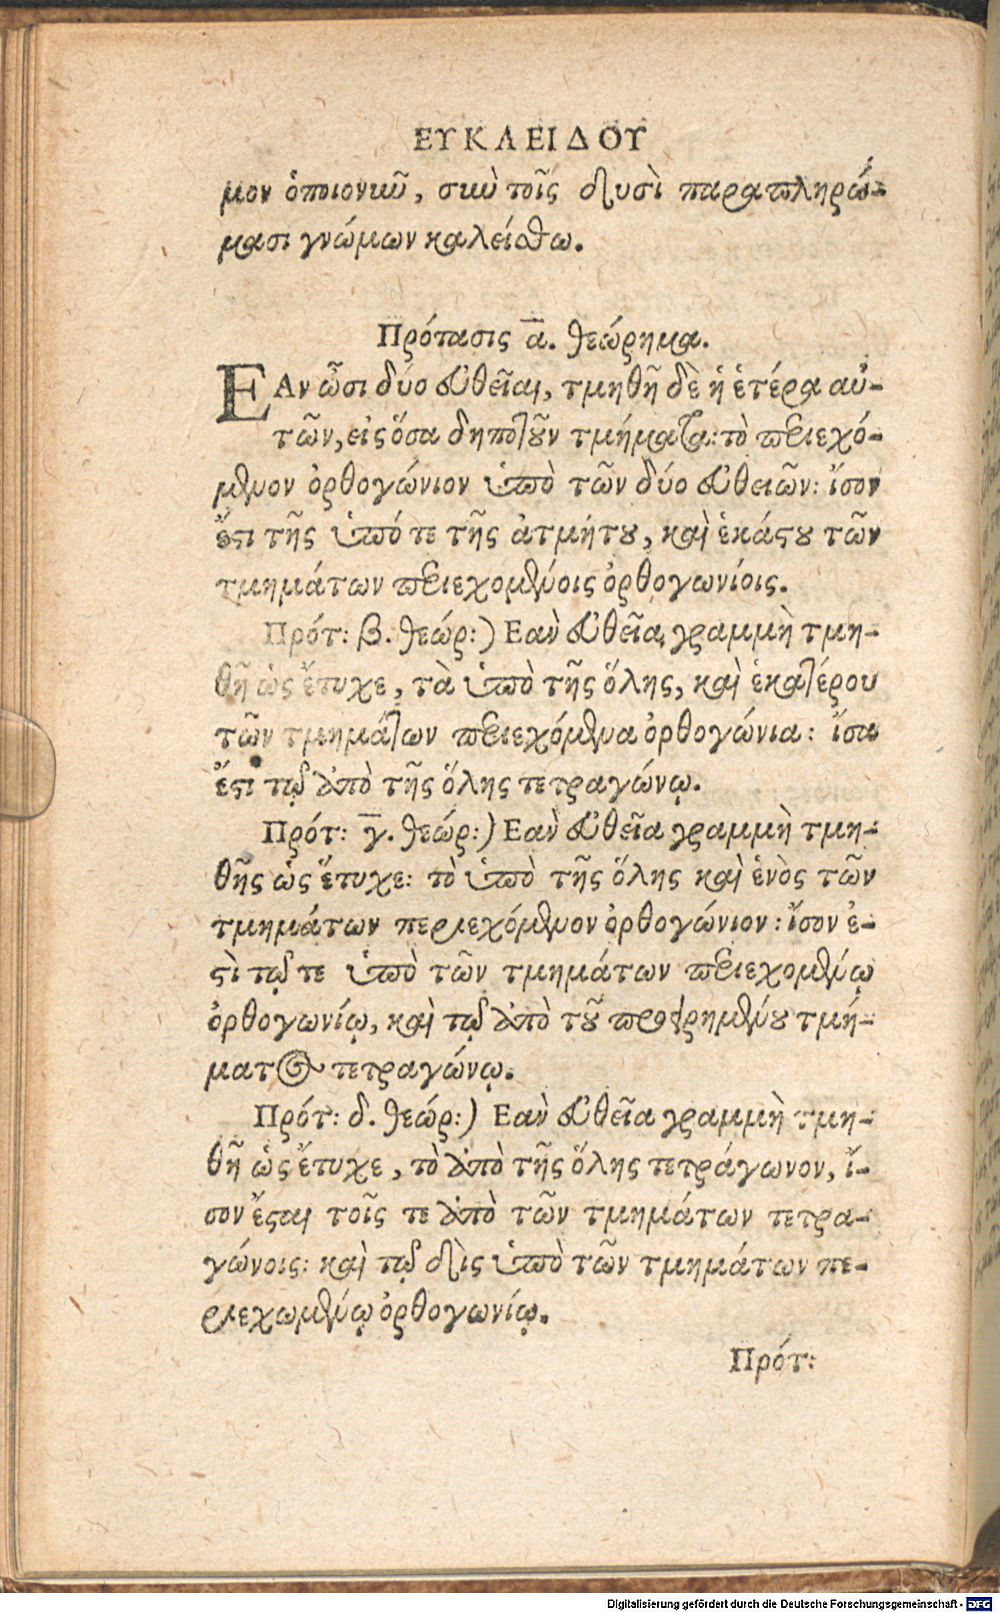 ΕΥΚΛΕΙΔΟΥ
μον ὁποιονοῦν, σὺν τοῖς δυσὶ παραπληρώ-
μασι γνώμων καλείσθω.
Πρότασις α̅. θεώρημα.
ΕΑν ὦσι δύο εὐθεῖαι, τμηθῆ δὲ ἡ ἑτέρα αὐ-
τῶν, εἰς ὅσα δηποτοῦν τμήματα: τὸ περιεχό-
μενον ὀρθογώνιον ὑπὸ τῶν δύο εὐθειῶν: ἴσον
ἔστι τῆς ὑπό τε τῆς ἀτμήτου, καὶ ἑκάστου τῶν
τμημάτων περιεχομένοις ὀρθογωνίοις.
Πρότ: β. θεώρ:) Εαν εὐθεῖα γραμμὴ τμη-
θῆ ὡς ἔτυχε, τὰ ὑπὸ τῆς ὅλης, καὶ ἑκατέρου
τῶν τμημάτων περιεχόμενα ὀρθογώνια: ἴσα
ἔστι τῷ ἀπὸ τῆς ὅλης τετραγώνῳ.
Πρότ: γ̅. θεώρ:) Εαν εὐθεῖα γραμμὴ τμη-
θῆς ὡς ἔτυχε: τὸ ὑπὸ τῆς ὅλης καὶ ἑνὸς τῶν
τμημάτων περιεχόμενον ὀρθογώνιον: ἴσον ἐ-
στὶ τῷ τε ὑπὸ τῶν τμημάτων περιεχομένῳ
ὀρθογωνίῳ, καὶ τῷ ἀπὸ τοῦ προειρημένου τμή-
ματος τετραγώνῳ.
Πρότ: δ. θεώρ:) Εαν εὐθεῖα γραμμὴ τμη-
θῆ ὡς ἔτυχε, τὸ ἀπὸ τῆς ὅλης τετράγωνον, ἴ-
σον ἔσται τοῖς τε ἀπὸ τῶν τμημάτων τετρα-
γώνοις: καὶ τῷ δὶς ὑπὸ τῶν τμημάτων πε-
ριεχωμένῳ ὀρθογωνίῳ.
Πρότ:
Digitalisierung gefördert durch die Deutsche Forschungsgemeinschaft - DFG